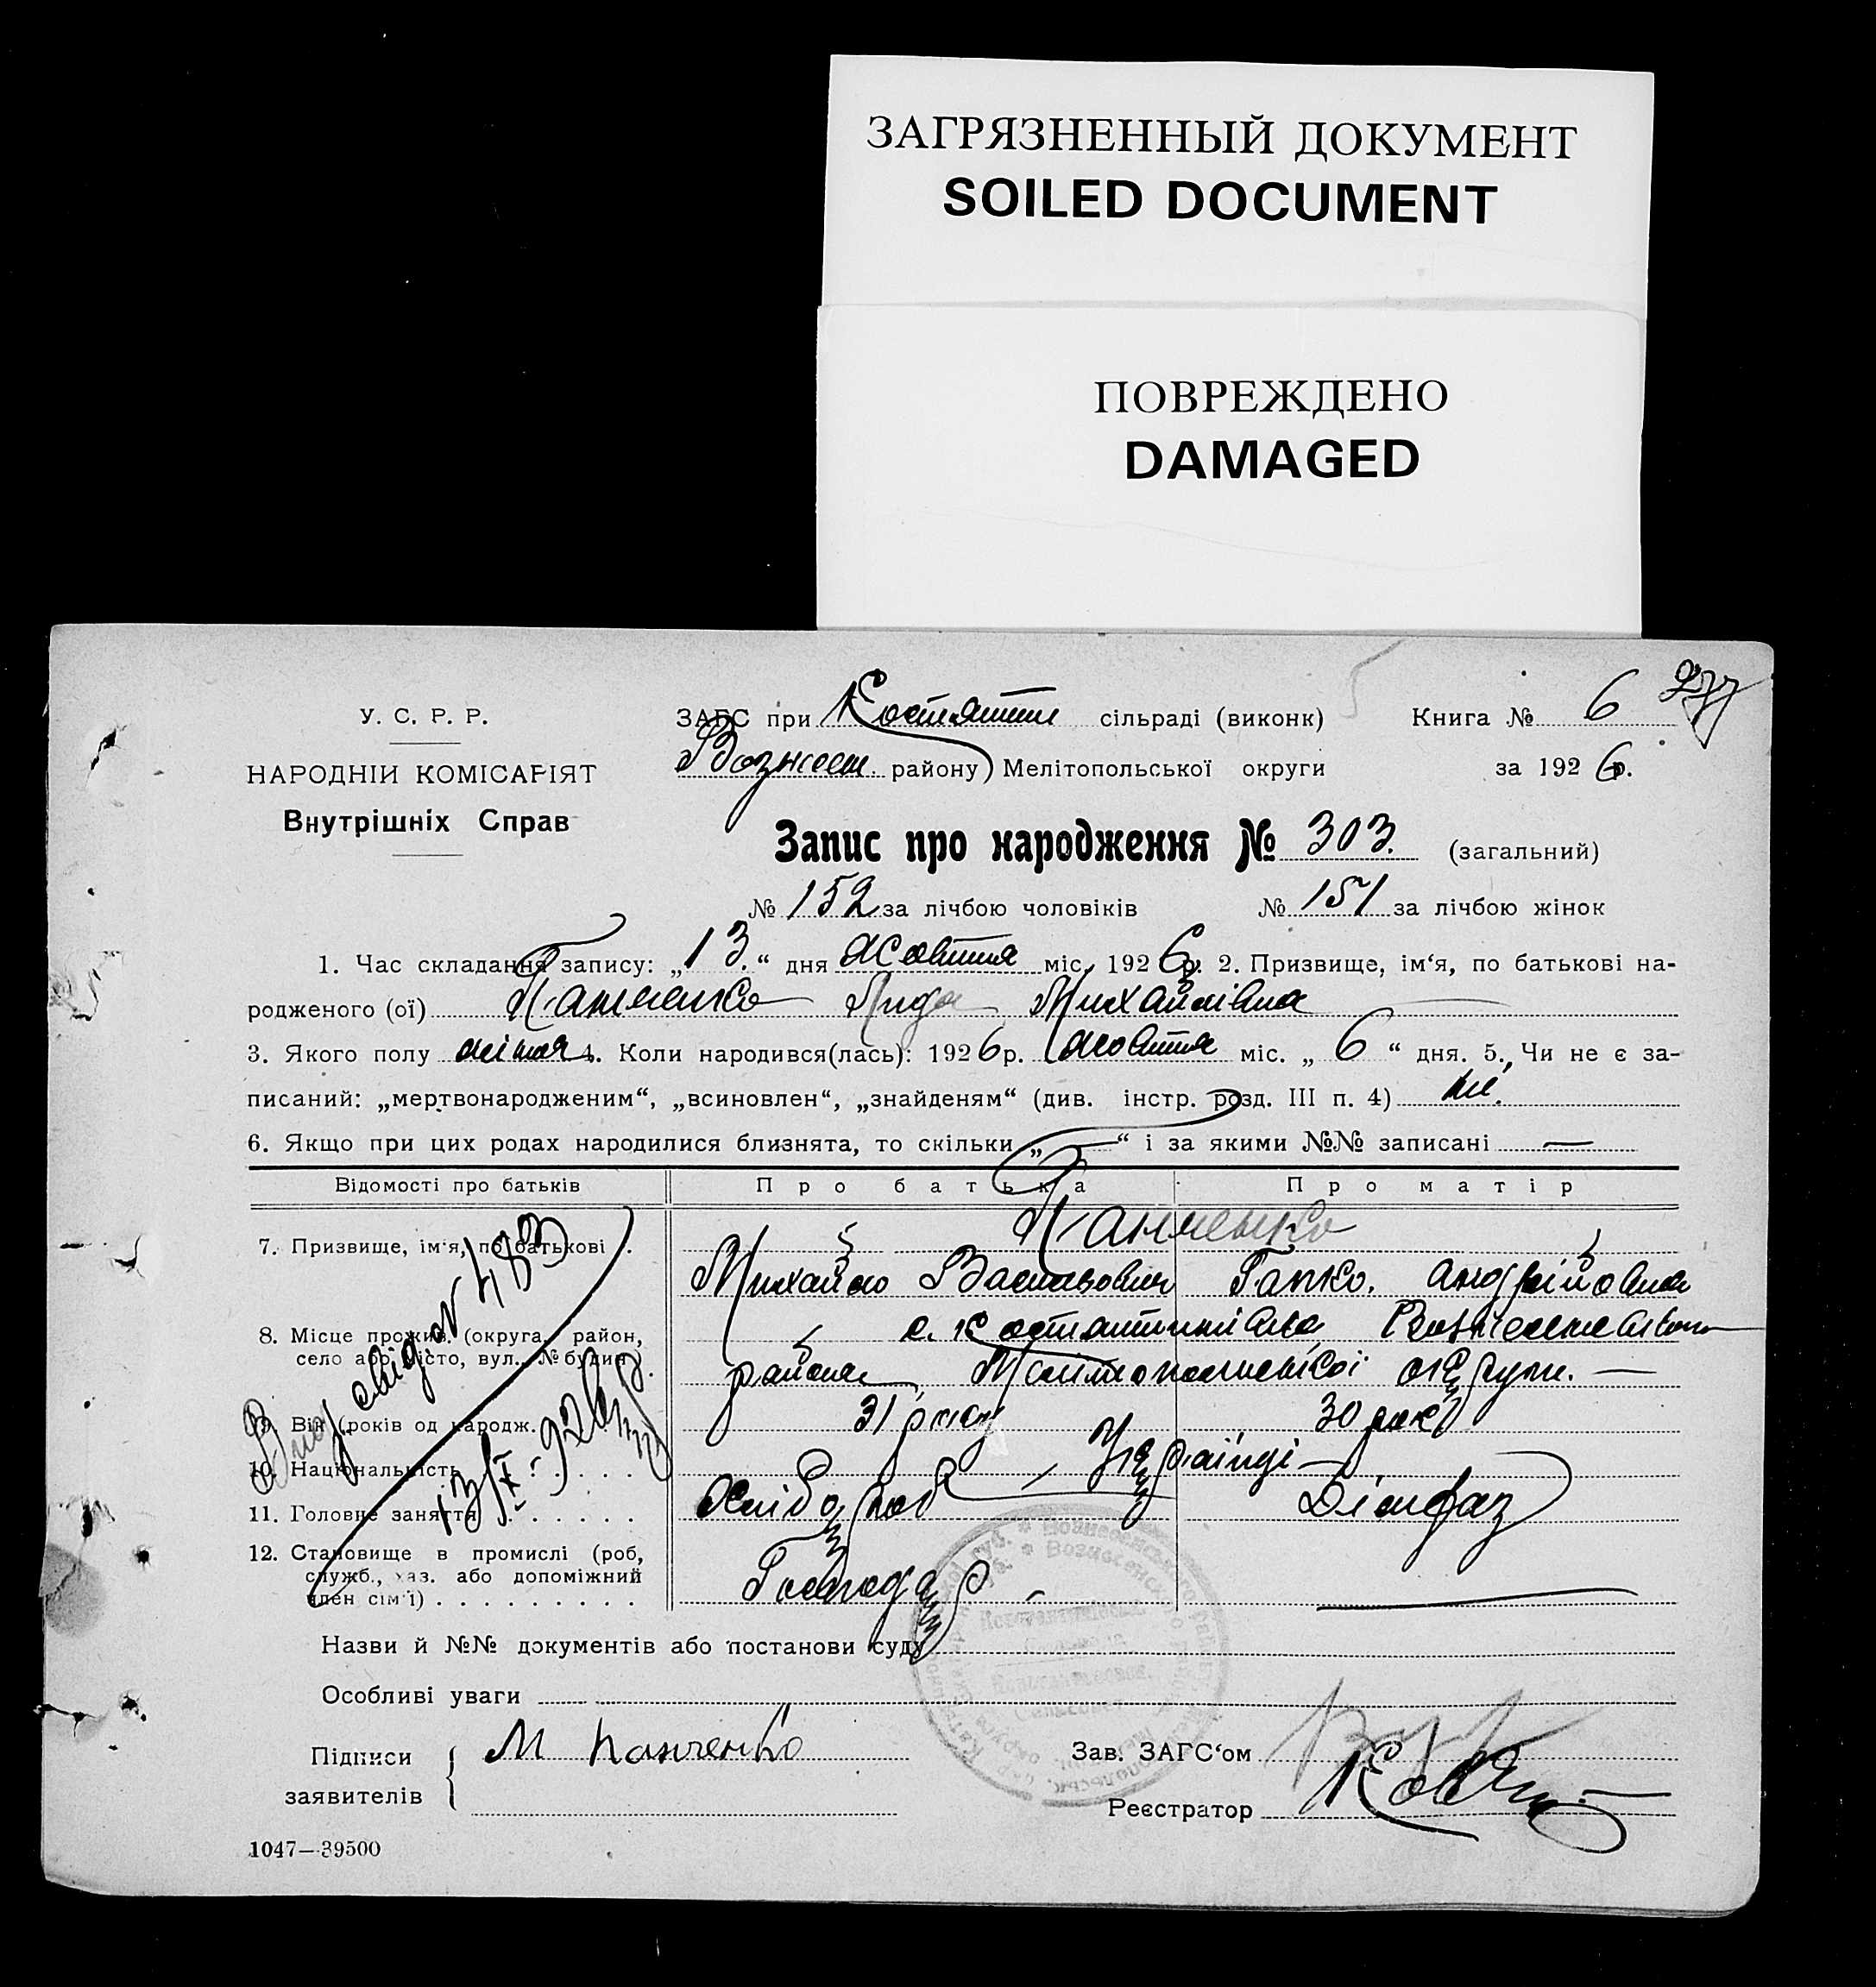 ЗАГРЯЗНЕННЫЙ ДОКУМЕНТ
SOILED DOCUMENT
ПОВРЕЖДЕНО
DAMAGED
277
У. С. Р. Р.
НАРОДНІЙ КОМІСАРІЯТ
Внутрішніх Справ
ЗАГС при Костянтин сільраді (виконк) Книга № 6
Вознесен. району) Мелітопольської округи за 1926р.
Запис про народження № 303. (загальний)
№ 152 за лічбою чоловіків № 151 за лічбою жінок
1. Час складання запису: „13.“ дня жовтня міс. 1926р. 2. Призвище, ім‘я, по батькові на-
родженого (ої) Панченко Лида Михайлівна
3. Якого полу жіноч 4. Коли народився(лась): 1926р. жовтня міс. „6“ дня. 5. Чи не є за-
писаний: „мертвонародженим“, „всиновлен“, „знайденям“ (див. інстр. розд. III п. 4) ні.
6. Якщо при цих родах народилися близнята, то скільки „—“ і за якими №№ записані —
Відомості про батьків Про батька Про матір
7. Призвище, ім‘я, по батькові . Панченко
Михайло Васильович Гапка. Андрійовна
8. Місце прожив. (округа, район, с. Костянтинівка Вознесенсько
село або місто, вул., № будин.) района Мелітопольської округи. —
9. Вік (років од народж. 31 рік 30 рок
10. Національність . . . . . Українці —
11. Головне заняття . . . . . . Хлібороб Домгаз
12. Становище в промислі (роб,
служб., хаз. або допоміжний
член сім‘ї) . . . . . . . . . Господар —
Видан свід. № 483
13/X - 926 р.
Назви й №№ документів або постанови суду
Особливі уваги
Підписи
заявителів
М Панченко
Зав. ЗАГС‘ом
Реєстратор
1047—39500